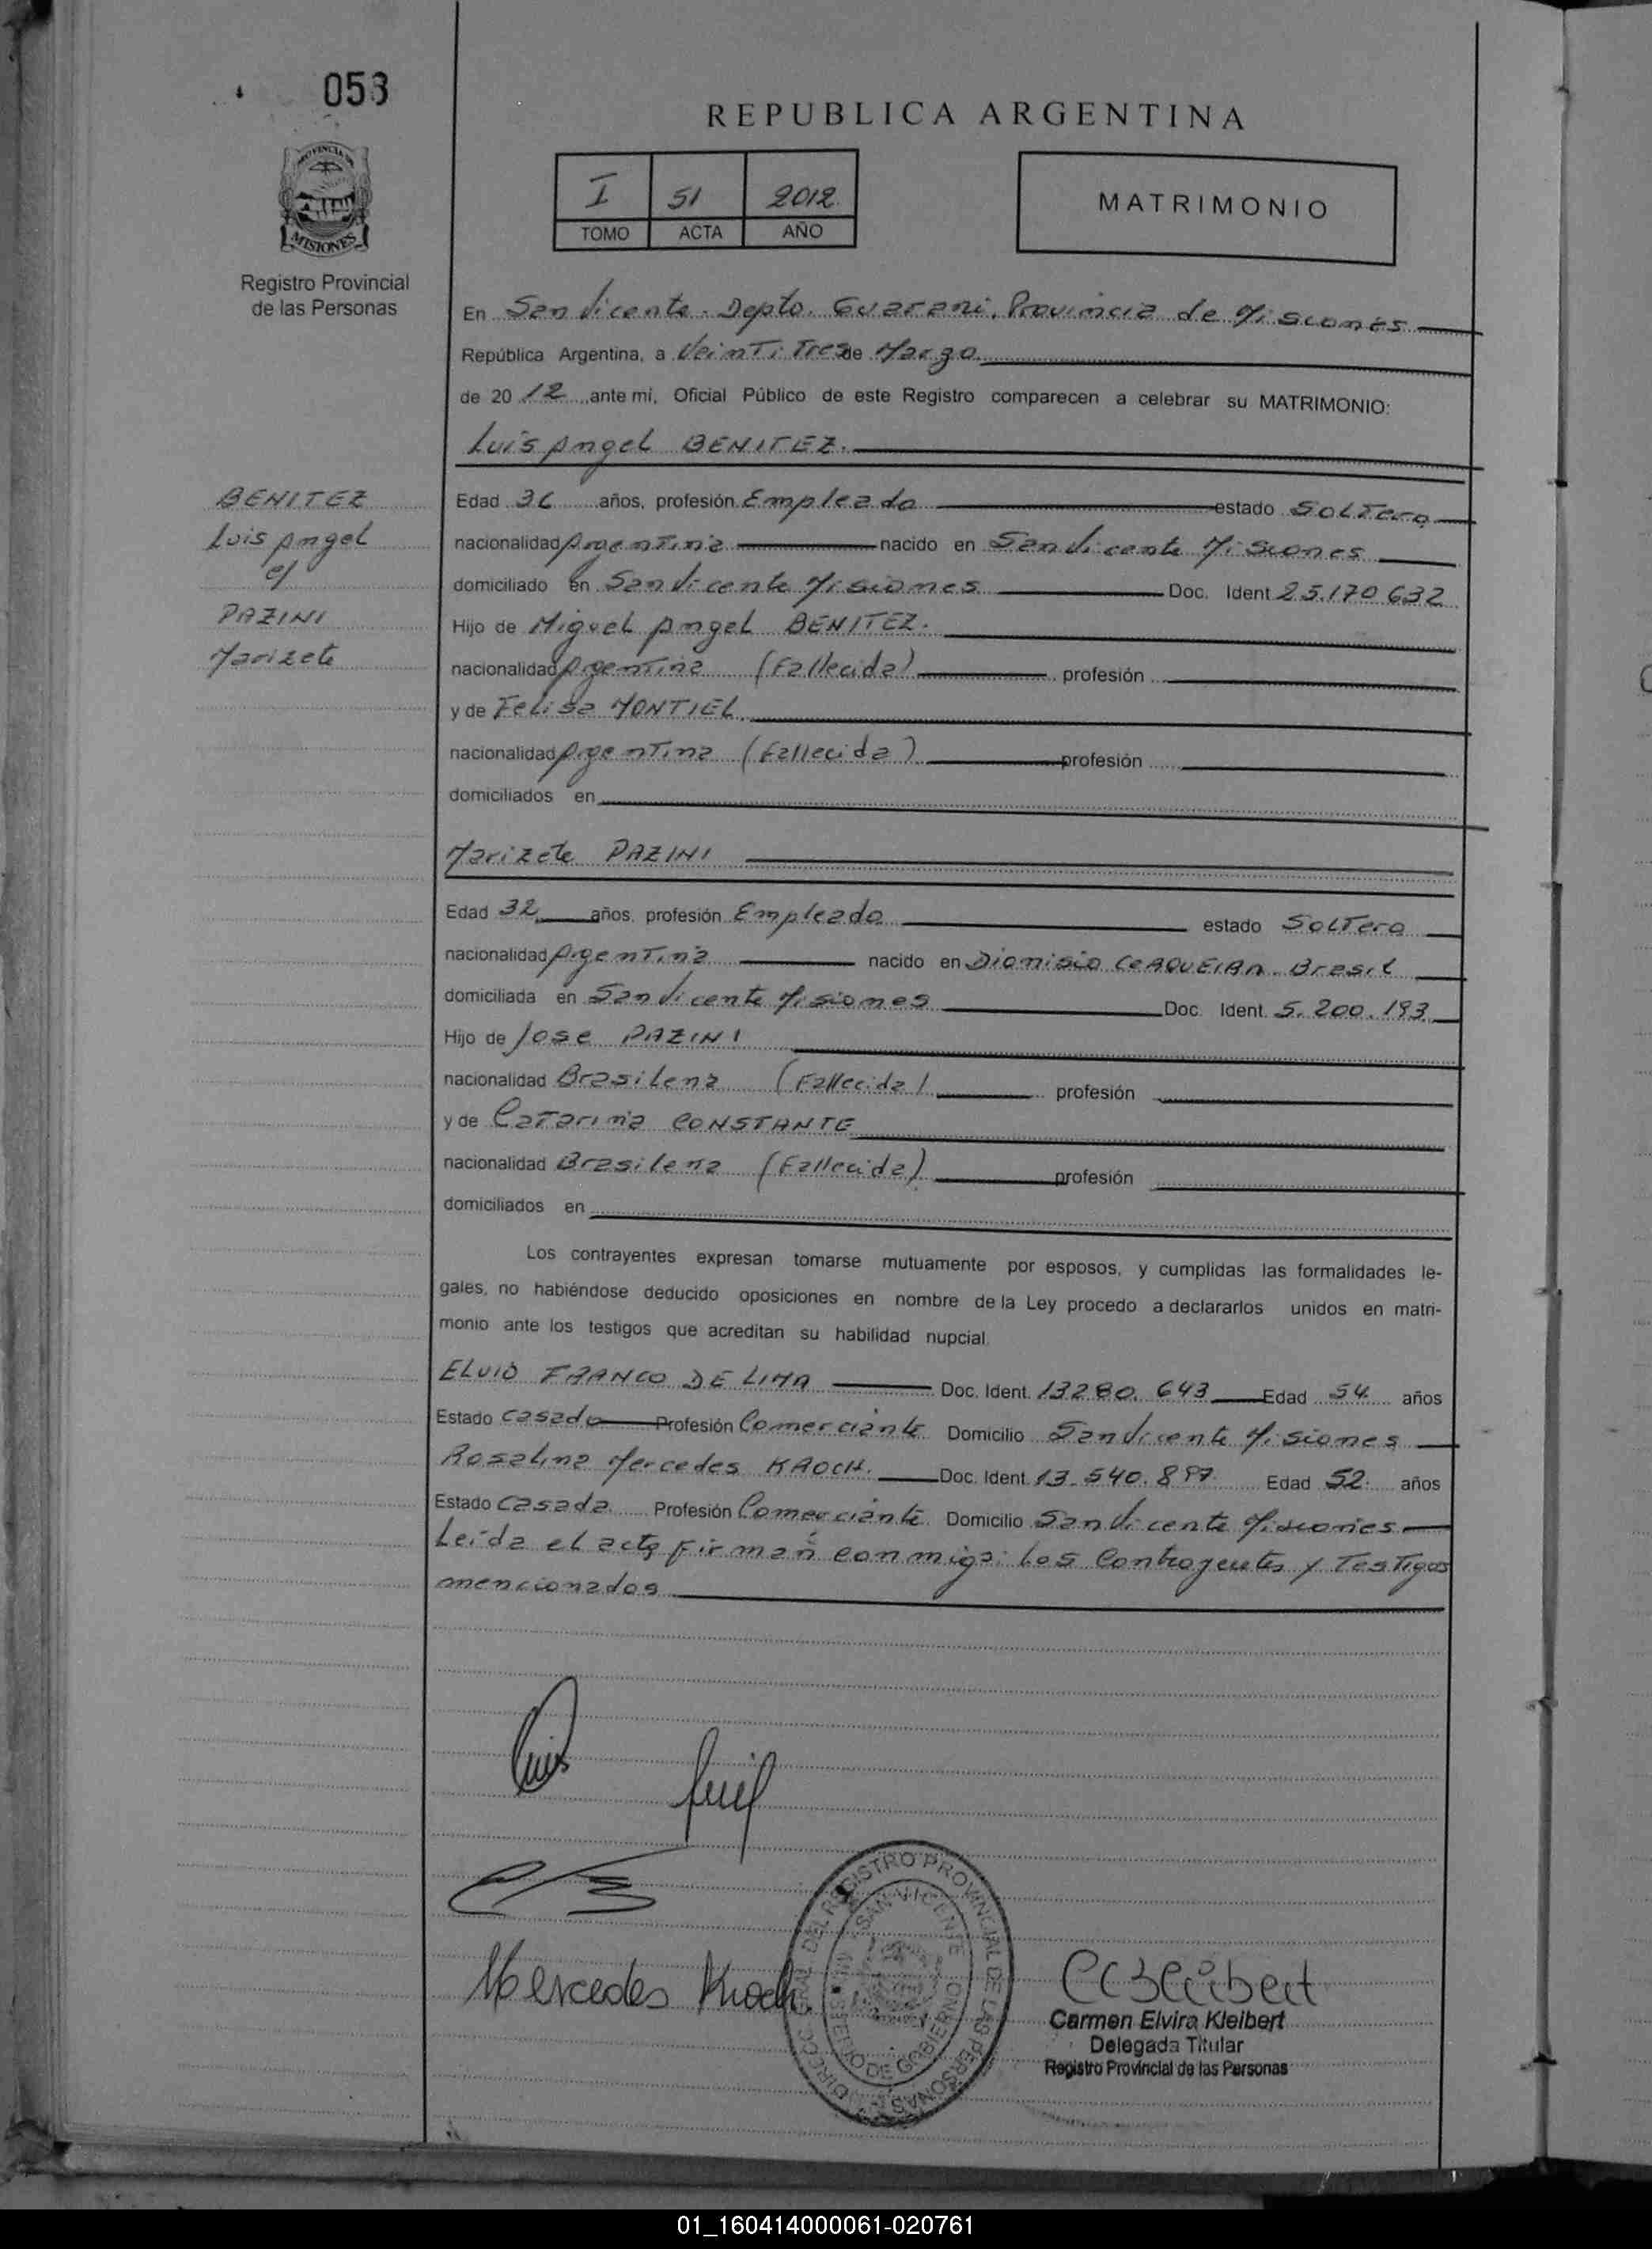 053
REPUBLICA ARGENTINA
PROVINCIA DE
MISIONES
Registro Provincial
de las Personas
I 51 2012
TOMO ACTA AÑO
MATRIMONIO
En San Vicente - Depto. Guarani, Provincia de Misiones
República Argentina, a Veinti Tres de Marzo
de 20 12 ante mi, Oficial Público de este Registro comparecen a celebrar su MATRIMONIO:
Luis Angel BENITEZ.
BENITEZ
Luis Angel
c/
PAZINI
Marizete
Edad 36 años, profesión Empleado estado Soltero
nacionalidad Argentina nacido en San Vicente Misiones
domiciliado en San Vicente Misiones Doc. Ident 25.170 632
Hijo de Miguel Angel BENITEZ.
nacionalidad Argentina (Fallecida) profesión
y de Felisa MONTIEL
nacionalidad Argentina (Fallecida) profesión
domiciliados en
Marizete PAZINI
Edad 32 años, profesión Empleado estado Soltero
nacionalidad Argentina nacido en Dionisio CERQUEIRA - Brasil
domiciliada en San Vicente Misiones Doc. Ident. 5.200.193
Hijo de Jose PAZINI
nacionalidad Brasilena (Fallecida) profesión
y de Catarina CONSTANTE
nacionalidad Brasilena (Fallecida) profesión
domiciliados en
Los contrayentes expresan tomarse mutuamente por esposos, y cumplidas las formalidades le-
gales, no habiéndose deducido oposiciones en nombre de la Ley procedo a declararlos unidos en matri-
monio ante los testigos que acreditan su habilidad nupcial.
ELVIO FRANCO DE LIMA Doc. Ident. 13280.643 Edad 54 años
Estado Casado Profesión Comerciante Domicilio San Vicente Misiones
Rosalina Mercedes KROCH. Doc. Ident. 13.540.897 Edad 52 años
Estado Casada Profesión Comerciante Domicilio San Vicente Misiones
Leida el acta firman conmigo: los Contrayentes y Testigos
mencionados
Luis
Mercedes Kroch.
DIRECC. GRAL DEL REGISTRO PROVINCIAL DE LAS PERSONAS
SAN VICENTE
DE GOBIERNO
Carmen Elvira Kleibert
Delegada Titular
Registro Provincial de las Personas
01_160414000061-020761